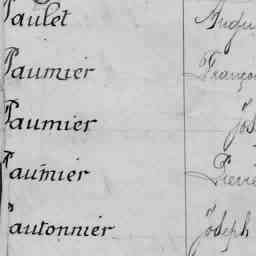 Paulet Augu
Paumier Françoi
Paumier Jos
Paumier Pierre
Pautonnier Joseph